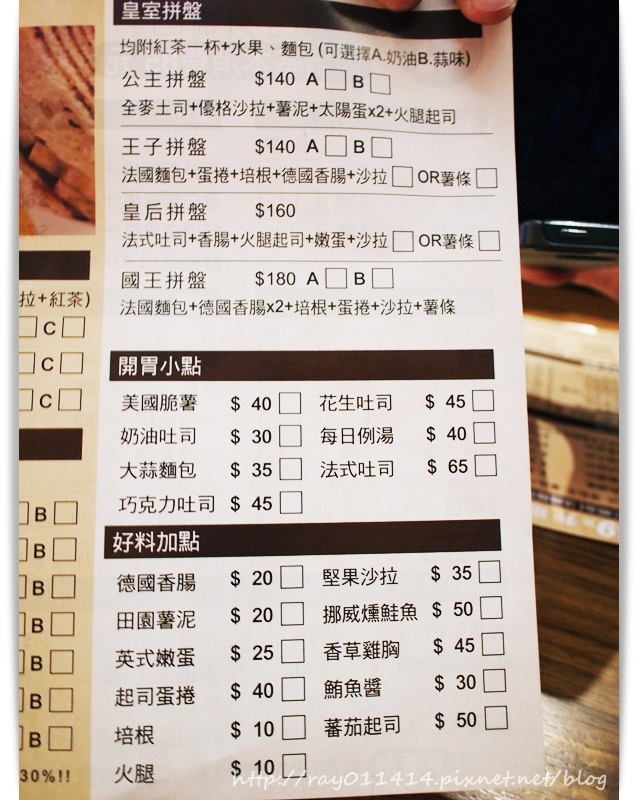 皇室拼盤
均附紅茶一杯+水果、麵包 (可選擇A.奶油B.蒜味)
公主拼盤 $140 A □ B □
全麥土司+優格沙拉+薯泥+太陽蛋x2+火腿起司
王子拼盤 $140 A □ B □
法國麵包+蛋捲+培根+德國香腸+沙拉 □ OR薯條 □
皇后拼盤 $160
法式吐司+香腸+火腿起司+嫩蛋+沙拉 □ OR薯條 □
國王拼盤 $180 A □ B □
法國麵包+德國香腸x2+培根+蛋捲+沙拉+薯條
拉+紅茶)
C □
C □
C □
開胃小點
美國脆薯 $ 40 □ 花生吐司 $ 45 □
奶油吐司 $ 30 □ 每日例湯 $ 40 □
大蒜麵包 $ 35 □ 法式吐司 $ 65 □
巧克力吐司 $ 45 □
好料加點
德國香腸 $ 20 □ 堅果沙拉 $ 35 □
田園薯泥 $ 20 □ 挪威燻鮭魚 $ 50 □
英式嫩蛋 $ 25 □ 香草雞胸 $ 45 □
起司蛋捲 $ 40 □ 鮪魚醬 $ 30 □
培根 $ 10 □ 蕃茄起司 $ 50 □
火腿 $ 10 □
B □
B □
B □
B □
B □
B □
B □
30%!!
http://ray011414.pixnet.net/blog